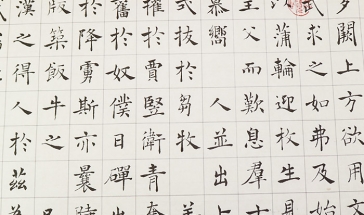 闕上方欲用文
武求之如弗及始
蒲輪迎枚生見
主父而歎息群士
慕嚮人並出
式拔於芻牧羊
擢於賈豎衛青奮
於奴僕日磾出
於降虜斯亦曩
版築飯牛之
漢之得人於茲為